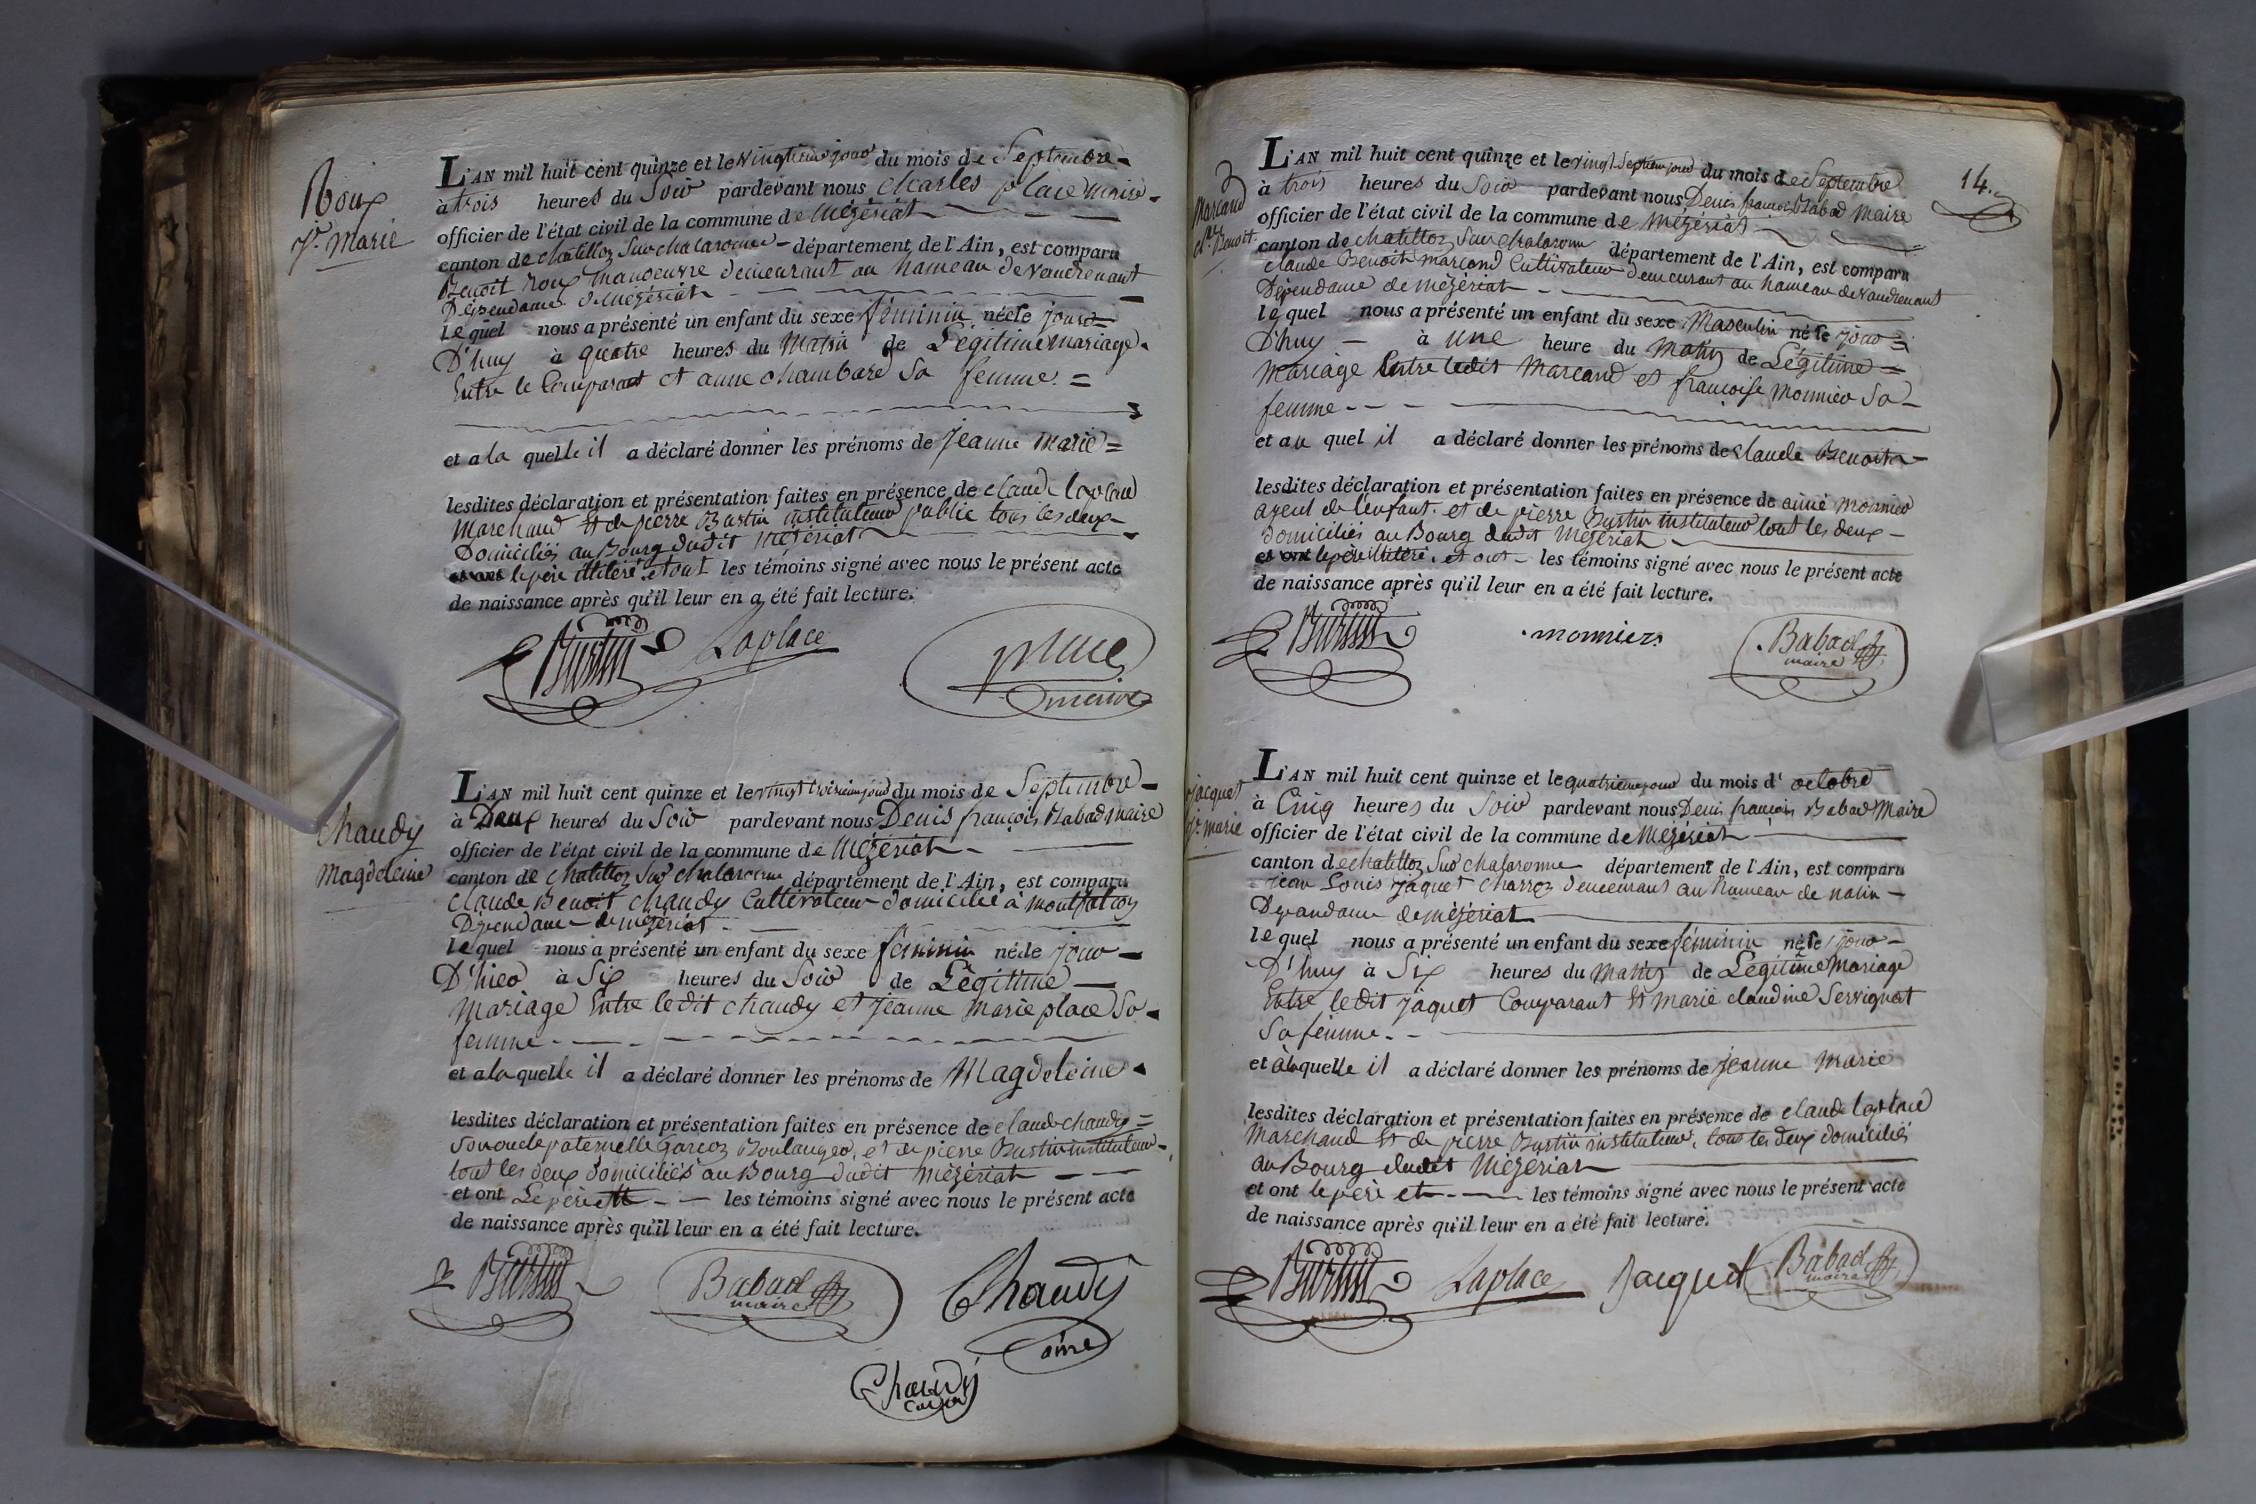 Roux
Je. Marie
L'AN mil huit cent quinze et le vingtieme jour du mois de Septembre
à trois heures du Soir pardevant nous Charles place maire
officier de l'état civil de la commune de Mézériat
canton de chatillon sur chalaronne département de l'Ain, est comparu
Benoit Roux manoeuvre demeurant au hameau de Vandrenant
Dépendance de Mézériat
le quel nous a présenté un enfant du sexe féminin née le jour
D'huy à quatre heures du Matin de Légitime mariage
Entre le Comparant et anne chambard Sa femme
et a la quelle il a déclaré donner les prénoms de Jeanne Marie
lesdites déclaration et présentation faites en présence de claude laplace
Marchand Et de pierre Burtin instituteur public tous les deux
Domiciliés au Bourg dudit Mézériat
le père illitéré et ont les témoins signé avec nous le présent acte
de naissance après qu'il leur en a été fait lecture.
Burtin Laplace place
maire
Chaudy
Magdeleine
L'AN mil huit cent quinze et le vingt troisieme jour du mois de Septembre
à Deux heures du Soir pardevant nous Denis françois Babad maire
officier de l'état civil de la commune de Mézériat
canton de chatillon sur chalaronne département de l'Ain, est comparu
claude Benoit chaudy Cultivateur domicilié à montfalcon
Dépendance de mézériat
le quel nous a présenté un enfant du sexe féminin née le jour
D'hier à Six heures du Soir de Légitime
Mariage Entre ledit chaudy et Jeanne Marie place Sa
femme
et a la quelle il a déclaré donner les prénoms de Magdeleine
lesdites déclaration et présentation faites en présence de claude chaudy
Son oncle paternelle Garcon Boulanger, et de pierre Burtin instituteur
tout les deux domiciliés au Bourg dudit Mézériat
et ont Le père et les témoins signé avec nous le présent acte
de naissance après qu'il leur en a été fait lecture.
Burtin Babad Chaudy
maire
Chaudy
14.
Marcand
Cde. Benoit
L'AN mil huit cent quinze et le vingt Septieme jour du mois de Septembre
à trois heures du Soir pardevant nous Denis françois Babad Maire
officier de l'état civil de la commune de Mézériat
canton de chatillon sur chalaronne département de l'Ain, est comparu
claude Benoit Marcand Cultivateur demeurant au hameau de Vandrenant
Dépendance de Mézériat
le quel nous a présenté un enfant du sexe Masculin né le jour
D'huy à une heure du Matin de Légitime
Mariage Entre ledit Marcand et françoise Monnier Sa
femme
et au quel il a déclaré donner les prénoms de claude Benoit
lesdites déclaration et présentation faites en présence de aimé Monnier
ayeul de l'enfant. et de pierre Burtin instituteur tout les deux
domiciliés au Bourg dudit Mézériat
le père illitéré. et ont les témoins signé avec nous le présent acte
de naissance après qu'il leur en a été fait lecture.
Burtin monnier Babad
maire
jacquet
Je. marie
L'AN mil huit cent quinze et le quatrieme jour du mois d'octobre
à Cinq heures du Soir pardevant nous Denis françois Babad Maire
officier de l'état civil de la commune de Mézériat
canton de chatillon sur chalaronne département de l'Ain, est comparu
jean Louis jaquet charron demeurant au hameau de
Dépandance de mézériat
le quel nous a présenté un enfant du sexe féminin née le jour
D'huy à Six heures du Matin de Légitime Mariage
Entre ledit jaquet Comparant Et Marie claudine Servignat
Sa femme
et à la quelle il a déclaré donner les prénoms de jeanne Marie
lesdites déclaration et présentation faites en présence de claude laplace
Marchand Et de pierre Burtin instituteur, tous les deux domiciliés
au Bourg dudit Mézériat
et ont le père et les témoins signé avec nous le présent acte
de naissance après qu'il leur en a été fait lecture.
Burtin Laplace Jacquet Babad
maire